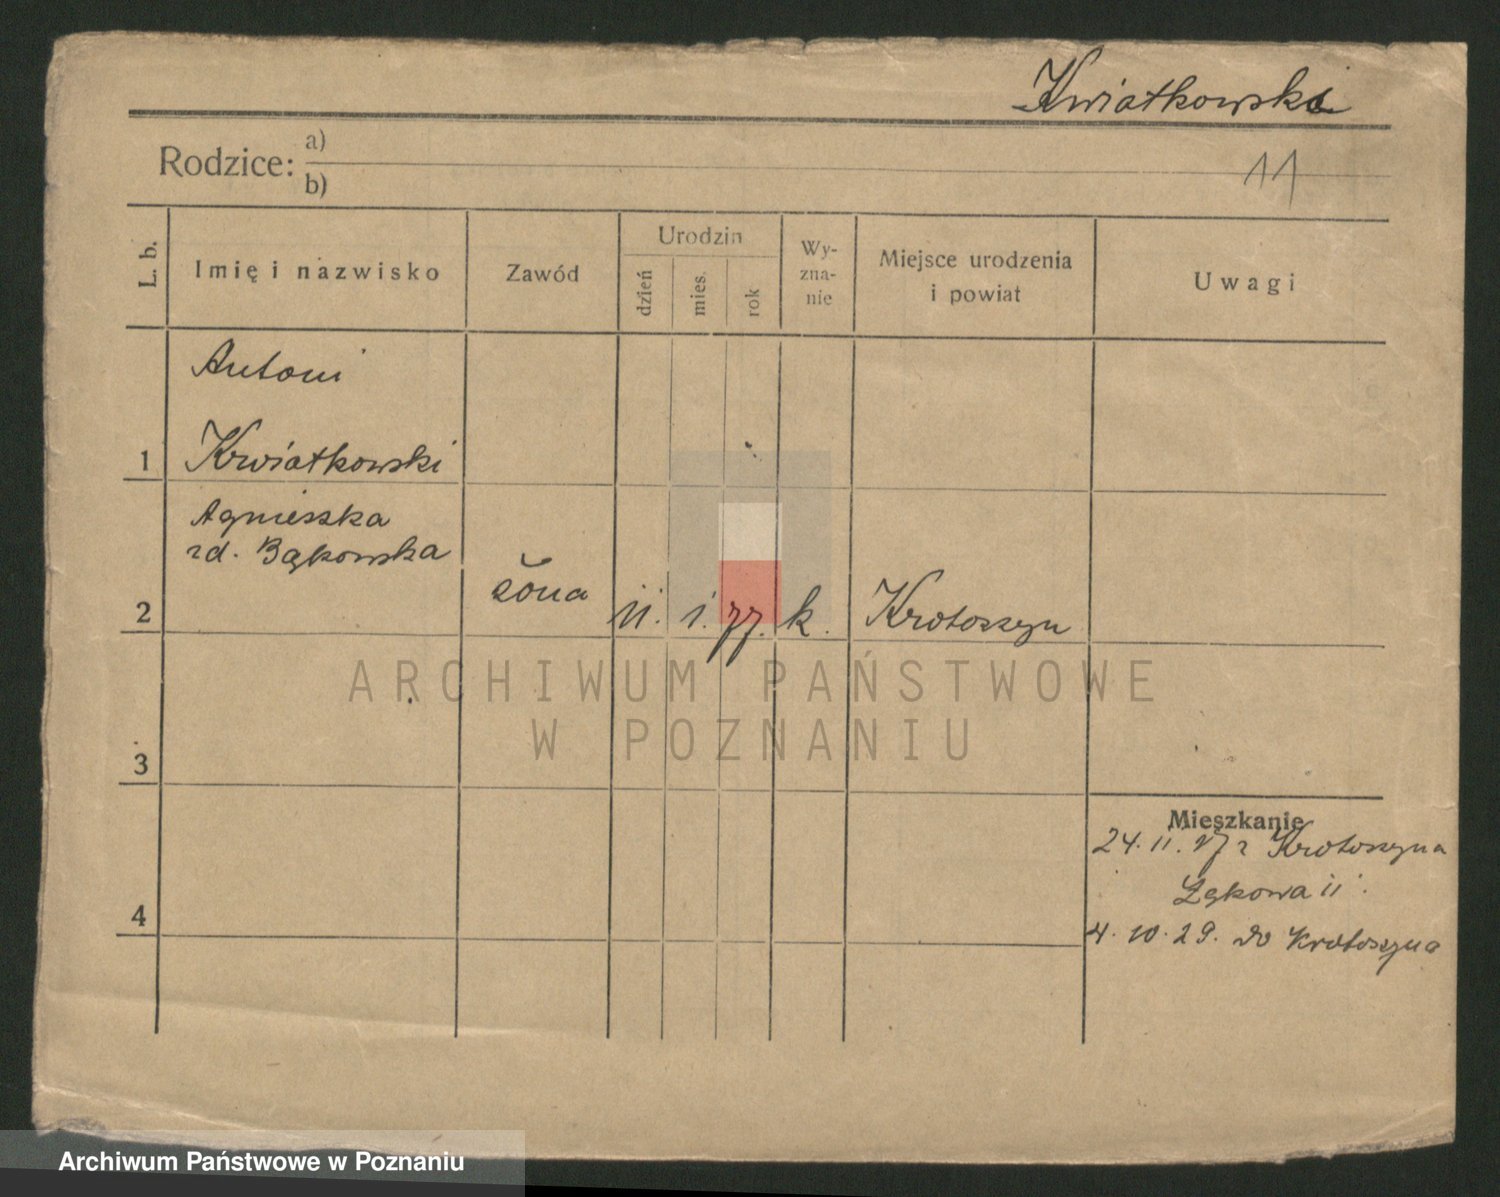 Kwiatkowski
Rodzice: a)
b)
11
L. b.
Imię i nazwisko
Zawód
Urodzin
dzień
mies.
rok
Wy-
zna-
nie
Miejsce urodzenia
i powiat
Uwagi
Antoni
1 Kwiatkowski
Agnieszka
zd. Bąkowska
2 żona 11. 1. 77. k. Krotoszyn
ARCHIWUM PAŃSTWOWE
W POZNANIU
3
Mieszkanie
24. 11. 27 z Krotoszyna
Łąkowa 11.
4
4. 10. 29. do Krotoszyna
Archiwum Państwowe w Poznaniu